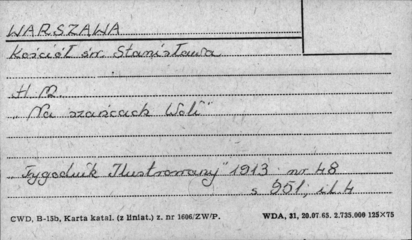 WARSZAWA
Kościół św. Stanisława
H. M.
„Na szańcach Woli"
„Tygodnik Ilustrowany" 1913 nr 48
s 951, il. 4
CWD, B-15b, Karta katal. (z liniat.) z. nr 1606/ZW/P. WDA, 31, 20.07.65. 2.735.000 125×75